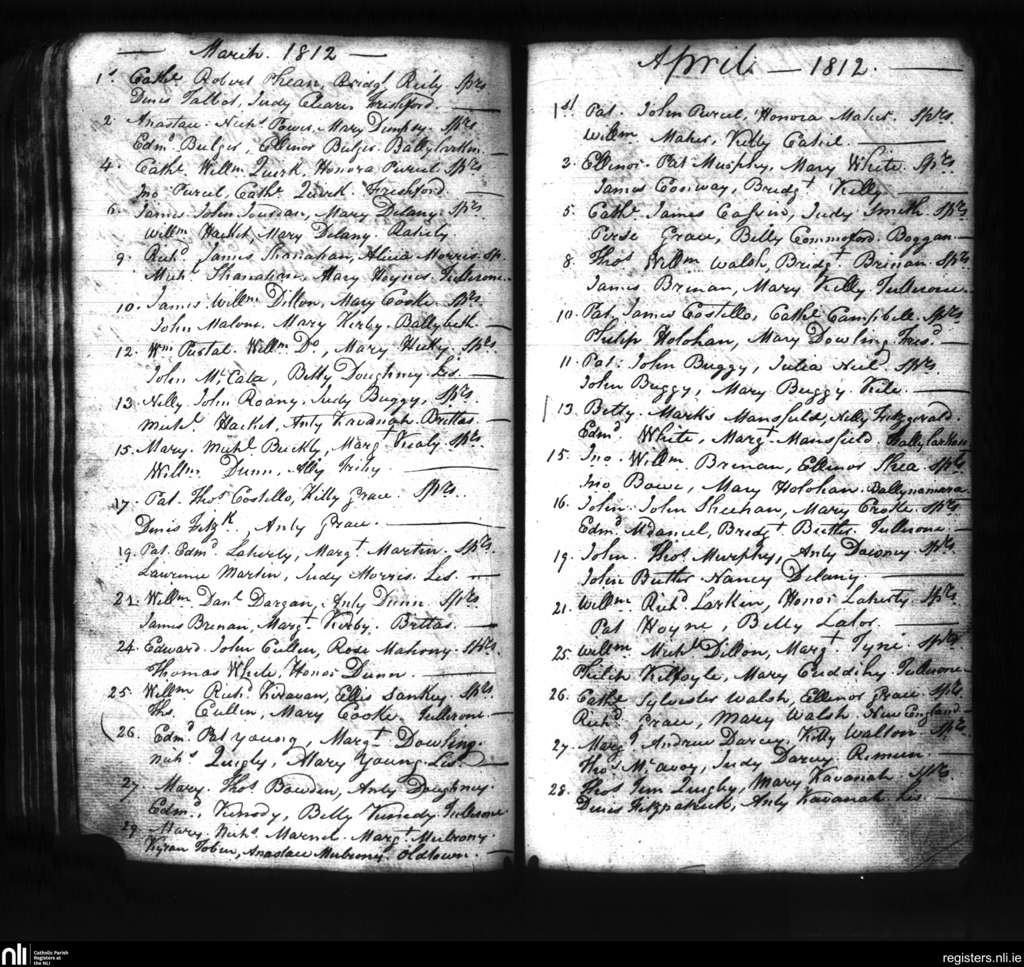 — March. 1812 —
1st Cathe Robert Phean, Bridgt Rely Sprs
Denis Talbot, Judy Clearer Freshford.
2. Anastace. Nichs Power. Mary Dempsy. Sprs
Edmd Bulger, Ellinor Bulger. Ballylarkin.
4. Cathe. Willm Quirk, Honora Purcel. Sprs
Jno Purcel, Cathe Quirk. Freshford.
6. James John Jourdan, Mary Delany. Sprs
Willm Hacket, Mary Delany.
9. Richd James Shanahan, Alicia Morris. Sp.
Michl Shanahan, Mary Hoynes. Tullerone.
10. James. Willm Dillon, Mary Cooke. Sprs
John Malone, Mary Kerby. Ballybeth
12. Wm Pustal. Willm Do, Mary Hicky. Sprs
John McCata, Betty Doughney Lis.
13. Nelly. John Roany. Judy Buggy, Sprs.
Michl. Hacket, Anty Kavanah. Brittas.
15. Mary. Michl Buckly, Margt Sprs
Willm Dunn, Ally
17. Pat. Thos Costello, Kitty Grace. Sprs.
Denis Fitzk, Anty Grace.
19. Pat. Edmd Laherty, Margt Martin. Sprs
Lawrence Martin, Judy Morris. Lis.
21. Willm Danl Dargan, Anty Dunn Sprs
James Brenan, Margt Kerby. Brittas.
24. Edward. John Cullen, Rose Mahony. Sprs.
Thomas White, Honor Dunn.
25. Willm Richd Kiravan, Ellis Sankey. Sprs
Ths. Cullen, Mary Cooke. Tullerone.
26. Edmd Pat Young, Margt Dowling.
Nichs Quigly, Mary Young. Lis.
27. Mary. Thos Bowden, Anty Doughney.
Edmd Kenedy, Belly Kenedy. Tullerone
29. Mary. Nichs. Marnel. Margt Mulrony.
Kyran Tobin, Anastace Mulrony. Oldtown.
April. — 1812.
1st Pat. John Purcel, Honora Maher. Sprs.
Willm Maher, Kitty Cahil.
3. Ellinor. Pat Murphy, Mary White. Sprs
James Cosway, Bridgt Kelly
5. Cathe. James Judy Smith. Sprs
Perse Grace, Belly Commoford. Boggan.
8. Thos Willm Walsh, Bridgt Brinan. Sprs
James Brenan, Mary Kelly. Tullerone.
10. Pat, James Costello, Cathe Campbell. Sprs
Philip Holohan, Mary Dowling Fresd.
11. Pat: John Buggy, Julia Neil. Sprs.
John Buggy, Mary Buggy. Kile.
13. Betty. Marks Mansfield, Nelly Fitzgerald.
Edmd White, Margt Mansfield. Ballylarkin
15. Jno. Willm Brenan, Ellinor Shea Sprs
Jno Bowe, Mary Holohan. Ballynamara.
16. John. John Sheehan, Mary Croke. Sprs.
Edmd McDaniel, Bridgt Butler. Tullerone.
19. John. Thos Murphy, Anty Downey Sprs.
John Butler Nancy Delany
21. Willm Richd Larkin, Honor Laherty. Sprs.
Pat Hoyne, Belly Lalor.
25. Willm Michl Dillon, Margt Tyne. Sprs
Philip Kilfoyle, Mary Cuddihy. Tullerone
26. Cathe Sylvester Walsh, Ellinor Grace. Sprs.
Richd Grace, Mary Walsh. New England.
27. Margt Andrew Darcey, Kitty Walton. Sprs.
Thos McAvoy, Judy Darcey
28. Thos Tim Quigley, Mary Kavanah. Sprs.
Denis Fitzpatrick, Anty Kavanah. Lis.
nli
Catholic Parish
Registers at
the NLI
registers.nli.ie